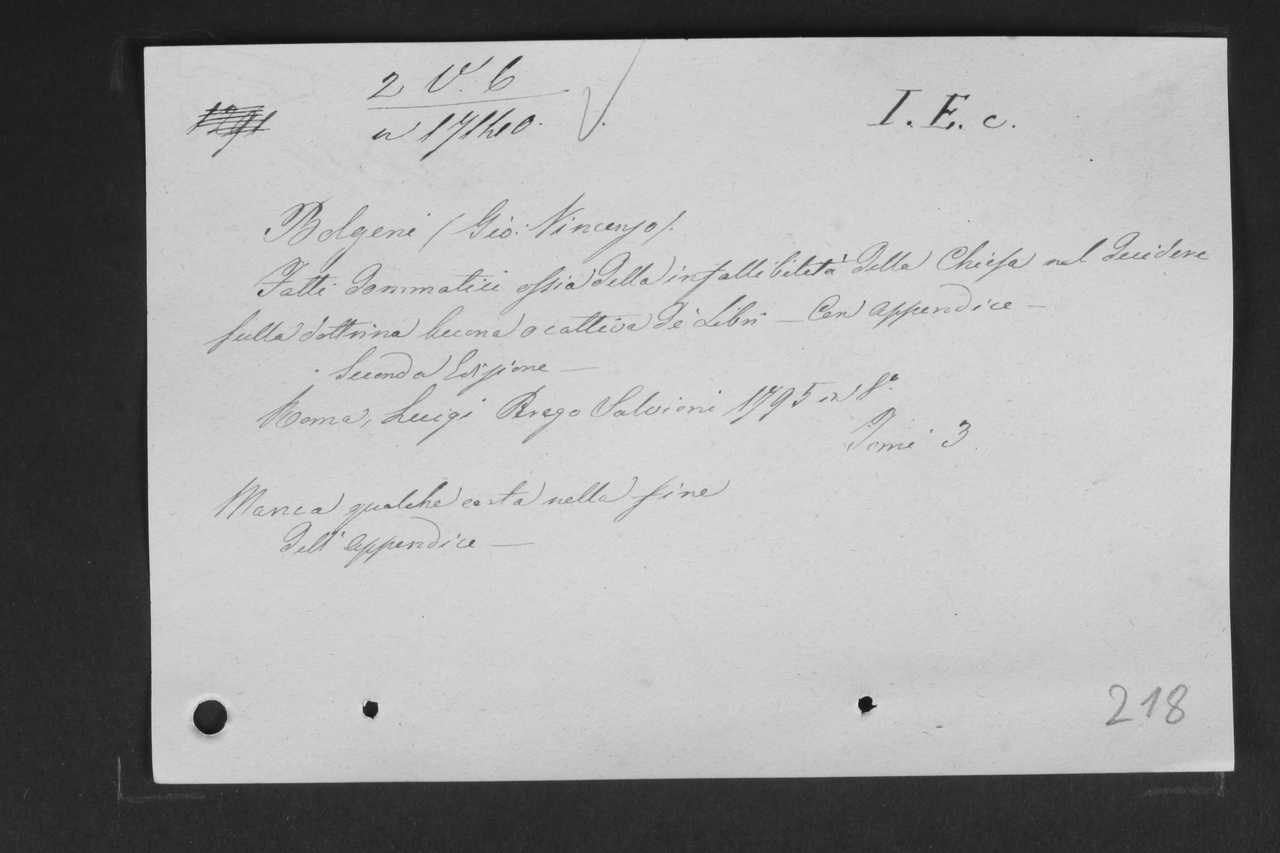 2 V. 6
n 17140.
I. E. c.
Bolgeni (Gio: Vincenzo).
Fatti dommatici ossia della infallibilità della Chiesa nel decidere
sulla dottrina buona o cattiva de' Libri — Con appendice —
Seconda Edizione —
Roma, Luigi Perego Salvioni 1795 in 8°.
Tomi 3
Manca qualche carta nella fine
dell' appendice —
218